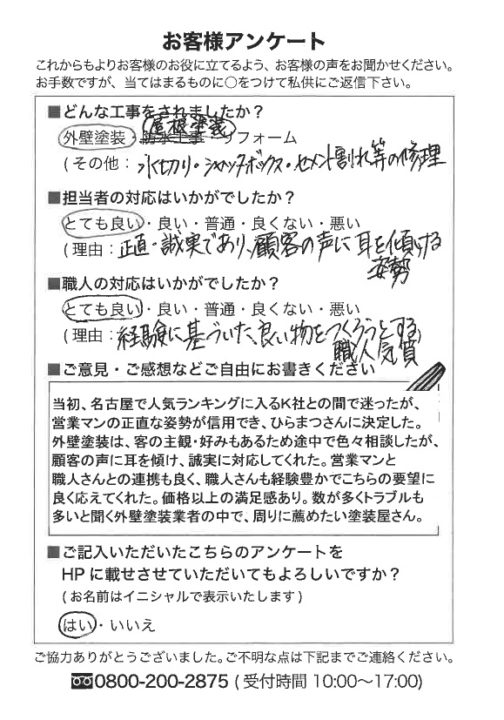 お客様アンケート
これからもよりお客様のお役に立てるよう、お客様の声をお聞かせください。
お手数ですが、当てはまるものに○をつけて私供にご返信下さい。
■どんな工事をされましたか?
屋根塗装
外壁塗装・防水工事・リフォーム
(その他: 水切り・シャッタボックス・セメント割れ等の修理
■担当者の対応はいかがでしたか?
とても良い・良い・普通・良くない・悪い
(理由: 正直・誠実であり、顧客の声に耳を傾ける
姿勢
■職人の対応はいかがでしたか?
とても良い・良い・普通・良くない・悪い
(理由: 経験に基づいた、良い物をつくろうとする
職人気質
■ご意見・ご感想などご自由にお書きください
当初、名古屋で人気ランキングに入るK社との間で迷ったが、
営業マンの正直な姿勢が信用でき、ひらまつさんに決定した。
外壁塗装は、客の主観・好みもあるため途中で色々相談したが、
顧客の声に耳を傾け、誠実に対応してくれた。営業マンと
職人さんとの連携も良く、職人さんも経験豊かでこちらの要望に
良く応えてくれた。価格以上の満足感あり。数が多くトラブルも
多いと聞く外壁塗装業者の中で、周りに薦めたい塗装屋さん。
■ご記入いただいたこちらのアンケートを
HPに載せさせていただいてもよろしいですか?
(お名前はイニシャルで表示いたします)
はい・いいえ
ご協力ありがとうございました。ご不明な点は下記までご連絡ください。
0800-200-2875 (受付時間 10:00〜17:00)